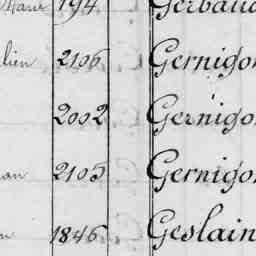 Marie 194 Gerbaud
lien 2106 Gernigon
2002 Gernigon
2105 Gernigon
1846 Geslain